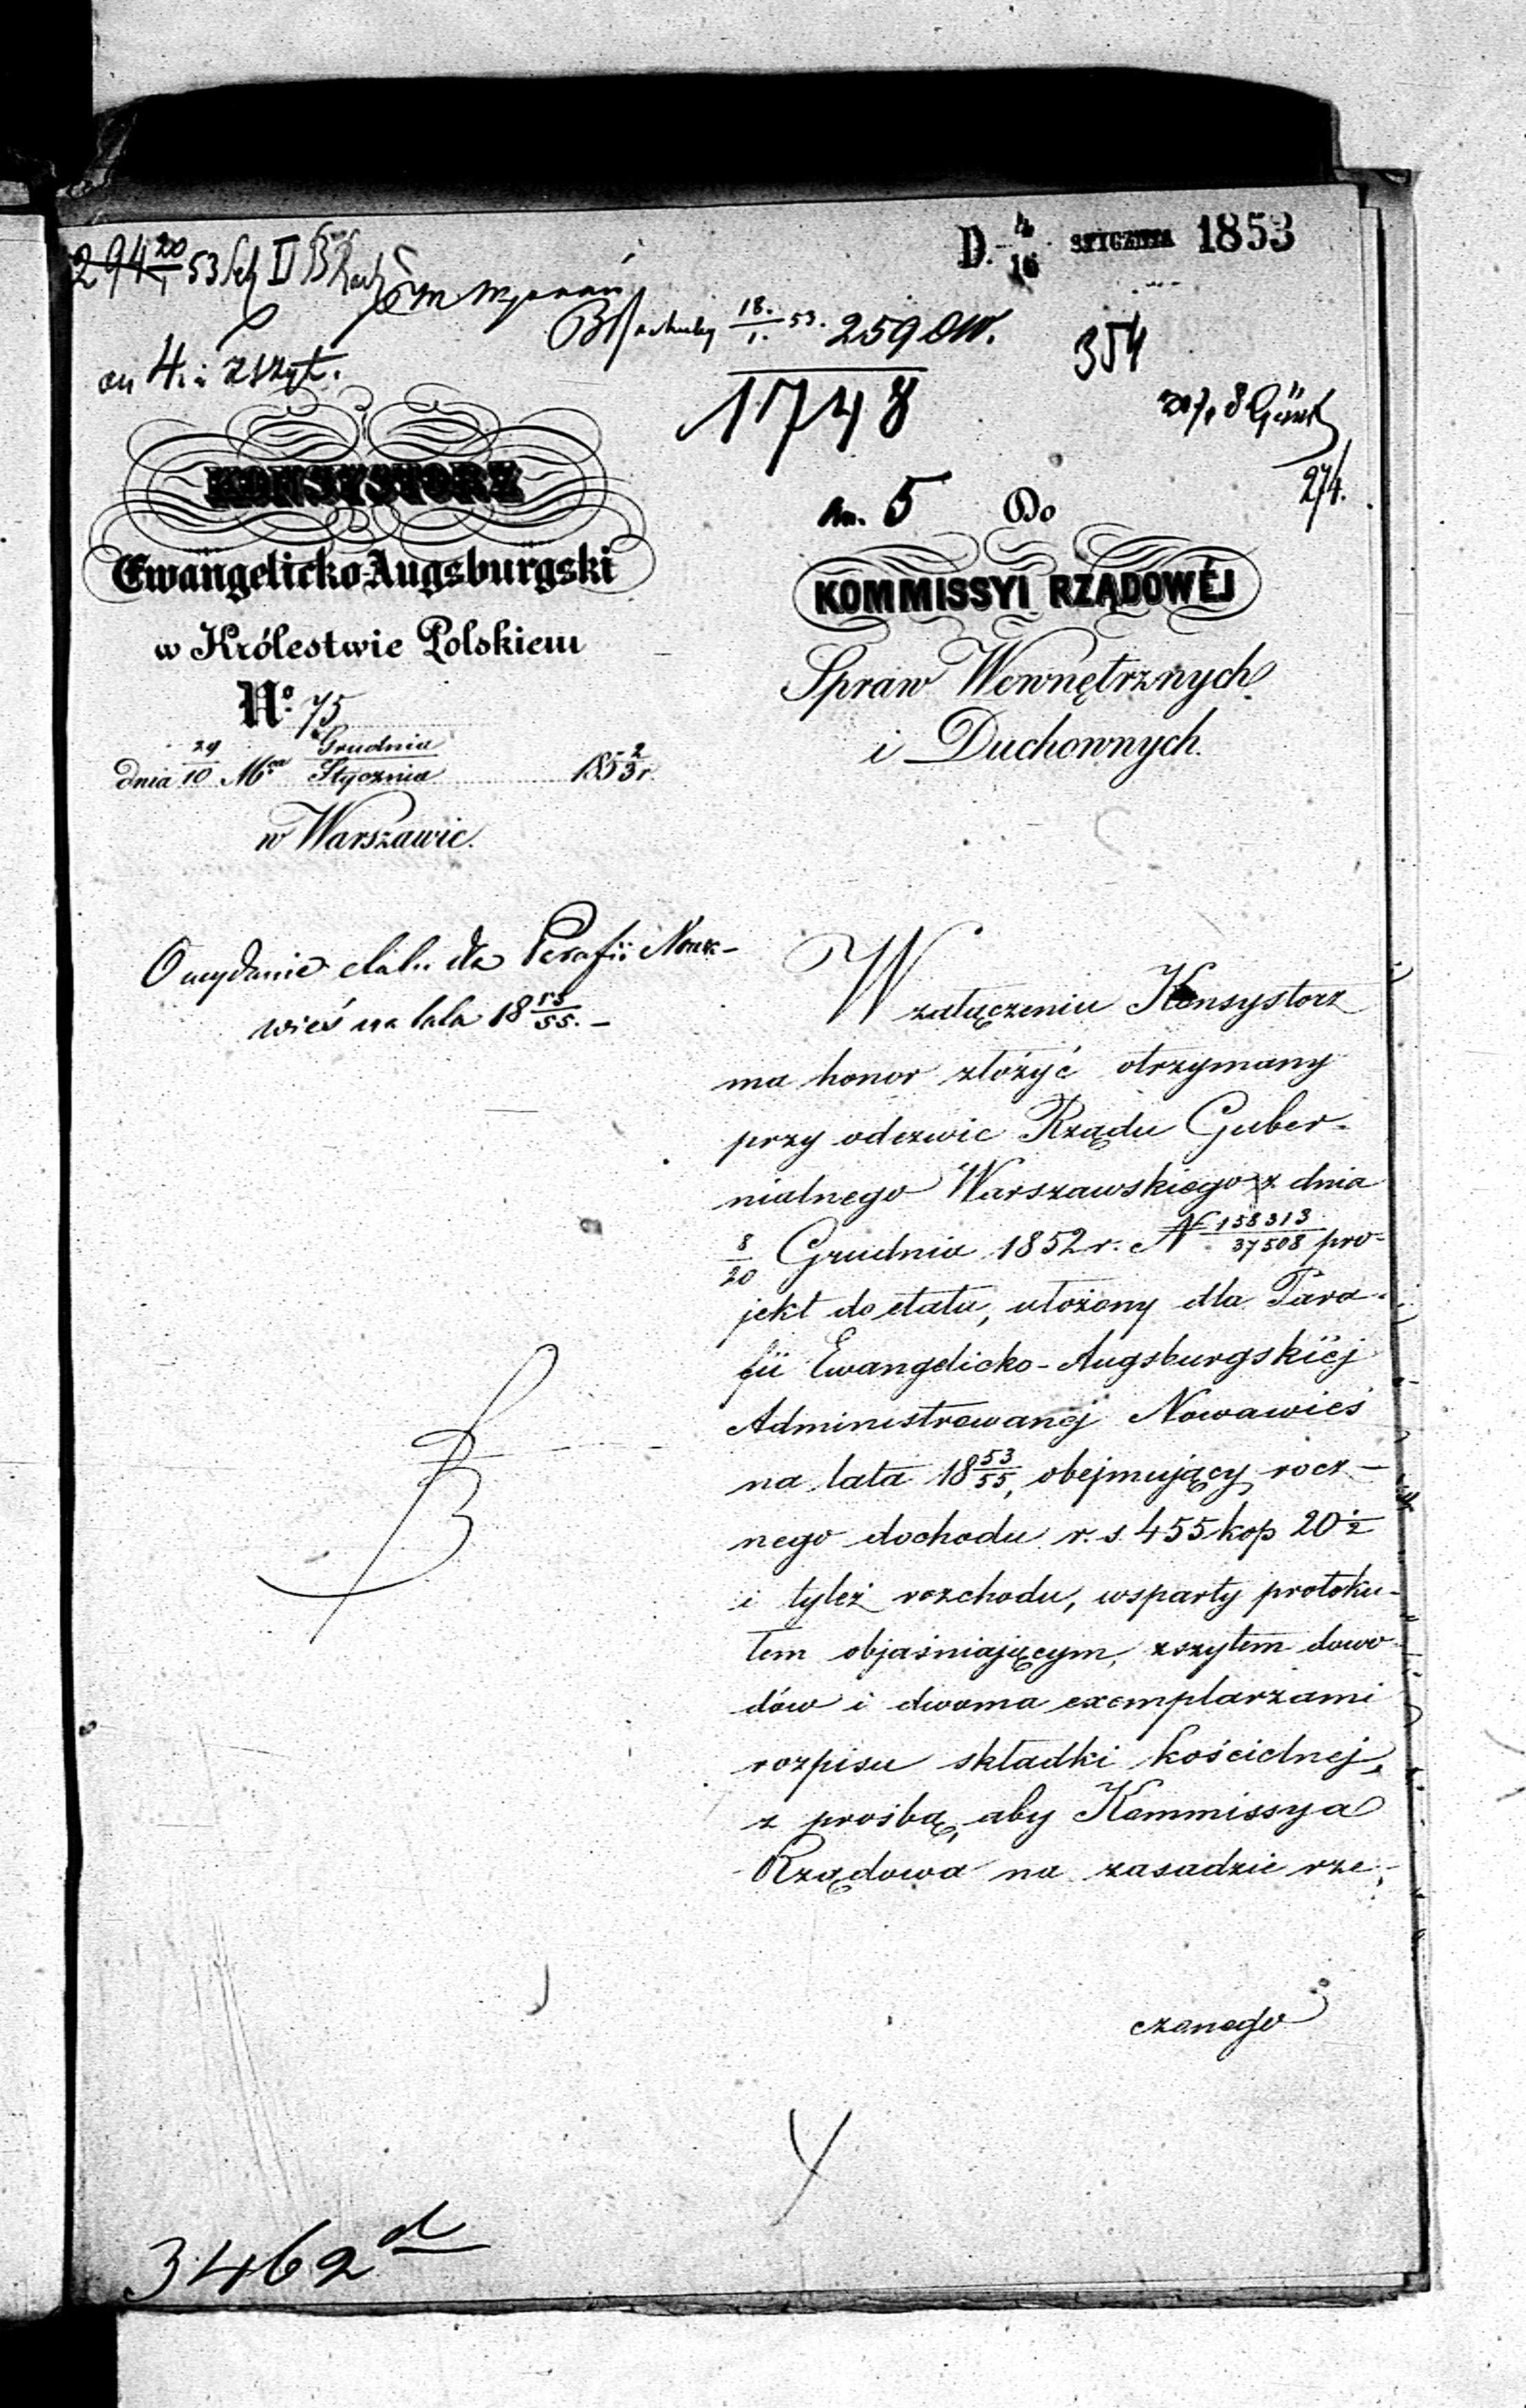 D. 4/16 STYCZNIA 1853
294 20/1 53
18./1. 53. 259
354
an 4. i zszyt.
1748
an. 5
274.
KONSYSTORZ
Ewangelicko-Augsburgski
w Królestwie Polskiem
No. 75
dnia 29/10 Mca Grudnia/Stycznia 185 2/3 r.
w Warszawie.
Do
KOMMISSYI RZĄDOWÉJ
Spraw Wewnętrznych
i Duchownych.
O wydanie etatu dla Parafii Nowa-
wieś na lata 18 53/55. –
W załączeniu Konsystorz
ma honor złożyć otrzymany
przy odezwie Rządu Guber-
nialnego Warszawskiego z dnia
8/20 Grudnia 1852 r. N 158313/37508 pro-
jekt do etatu, ułożony dla Para-
fii Ewangelicko-Augsburgskiéj
Administrowanej Nowawieś
na lata 18 53/55, obejmujący rocz-
nego dochodu r. s. 455 kop 20 1/2
i tyleż rozchodu, wsparty protoku-
łem objaśniającym, zszytem dowo-
dów i dwoma exemplarzami
rozpisu składki kościelnej,
z prośbą, aby Kommissya
Rządowa na zasadzie rze-
czonego
3462 d